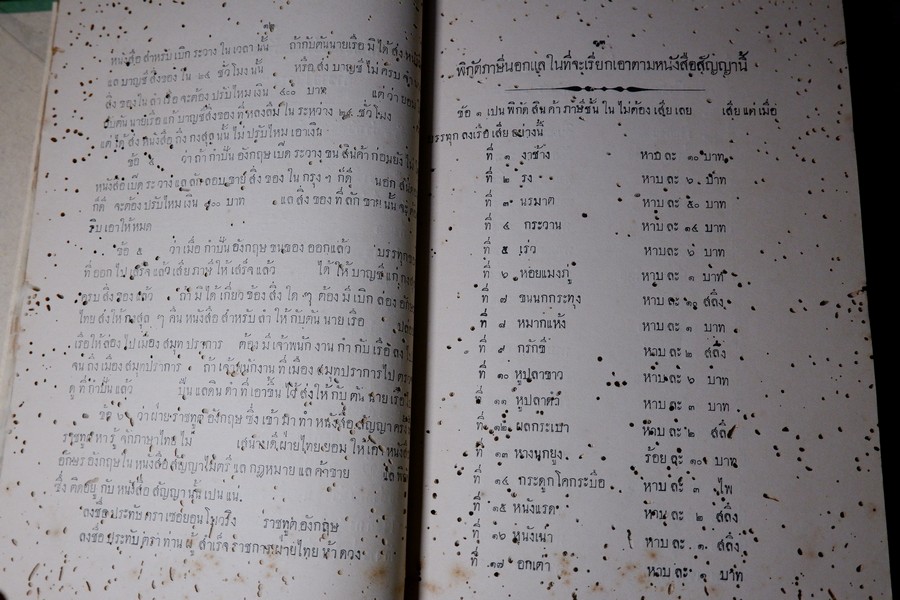 ๑๒
หนังสือ สำหรับ เบิก ระวาง ใน เวลา นั้น ถ้ากับตันนายเรือ มิ ได้ ส่ง หนัง
แล บาญชี สิ่งของ ใน ๒๔ ชั่วโมง นั้น หรือ ส่ง บาญชี ไม่ ครบ จำ
สิ่งของ ใน ลำ เรือ จะต้อง ปรับไหม เงิน ๔๐๐ บาท แต่ ว่า ยอม
กับตัน นายเรือ แก้ บาญชีสิ่งของ ที่ หลงลืม ใน ระหว่าง ๒๔ ชั่วโมง
แต่ ได้ ส่ง หนังสือ ถึง กงสุล นั้น ไม่ ปรับไหม เอาเงิน
ข้อ ๔ ว่า ถ้า กำปั่น อังกฤษ เปิด ระวาง ขน สินค้า ก่อนยัง ไม่
หนังสือ เปิด ระวาง แล ลักลอบ ขาย สิ่ง ของ ใน กรุง ฯ ก็ดี นอก สัน
ก็ดี จะต้อง ปรับไหม เงิน ๘๐๐ บาท แล สิ่ง ของ ที่ ลัก ขาย นั้น จะ
ริบ เอาให้ หมด
ข้อ ๕ ว่า เมื่อ กำปั่น อังกฤษ ขนของ ออกแล้ว บรรทุกขอ
ที่ ออก ไป เสร็จ แล้ว เสีย ภาษี ให้ เสร็จ แล้ว ได้ ให้ บาญชี แก่ กงสุ
ครบ สิ่ง ของ แล้ว ถ้า มิ ได้ เกี่ยว ข้อง สิ่ง ใด ๆ ต้อง มี เบิก ล่อง อังก
ไทย ส่งให้ กงสุล ๆ คืน หนังสือ สำหรับ ลำ ให้ กับตัน นาย เรือ ปล่อ
เรือให้ ล่อง ไป เมือง สมุท ปราการ ต้อง มี เจ้าพนักงาน กำ กับ เรือ ลง ไ
จน ถึง เมือง สมุทปราการ ถ้า เจ้าพนักงาน ที่ เมือง สมุทปราการ ไป ตรว
ดู ที่ กำปั่น แล้ว ปืน แลดินดำ ที่ เอาขึ้น ไว้ ส่งให้ กับ ตัน นาย เรือ ไป
ข้อ ๖ ว่า ฝ่าย ราชทูต อังกฤษ ซึ่ง เข้า มา ทำ หนังสือ สัญญา ครั้ง
ราชทูต หา รู้ จักภาษา ไทย ไม่ เสนาบดี ฝ่าย ไทย ยอม ให้ เอา หนังสื
อักษร อังกฤษ ใน หนังสือ สัญญา ไมตรี แล กฎหมาย แล ค้าขาย แล พิกั
ซึ่ง คิดอยู่ กับ หนังสือ สัญญา นั้น เปน แน่
ลงชื่อ ประทับ ตรา เซอยอนโบวริง ราชทูต อังกฤษ
ลงชื่อ ประทับ ตรา ท่าน ผู้ สำเร็จ ราชการ ฝ่ายไทย ห้า ดวง
พิกัดภาษีนอกแลในที่จะเรียกเอาตามหนังสือสัญญานี้
ข้อ ๑ เปน พิกัด สินค้า ภาษีชั้น ใน ไม่ต้อง เสีย เลย เสีย แต่ เมื่อ
บรรทุก ลงเรือ เสีย อย่างนี้
ที่ ๑ งาช้าง หาบ ละ ๑๐ บาท
ที่ ๒ รง หาบ ละ ๖ บาท
ที่ ๓ นรมาด หาบ ละ ๕๐ บาท
ที่ ๔ กระวาน หาบ ละ ๑๔ บาท
ที่ ๕ เร่ว หาบ ละ ๖ บาท
ที่ ๖ หอยแมงภู่ หาบ ละ ๑ บาท
ที่ ๗ ขนนกกระทุง หาบ ละ ๑๐ สลึง
ที่ ๘ หมากแห้ง หาบ ละ ๑ บาท
ที่ ๙ กรักขี หาบ ละ ๒ สลึง
ที่ ๑๐ หูปลาขาว หาบ ละ ๖ บาท
ที่ ๑๑ หูปลาดำ หาบ ละ ๓ บาท
ที่ ๑๒ ผลกระเบา หาบ ละ ๒ สลึง
ที่ ๑๓ หางนกยูง ร้อย ละ ๑๐ บาท
ที่ ๑๔ กระดูกโคกระบือ หาบ ละ ๓ ไพ
ที่ ๑๕ หนังแรด หาบ ละ ๒ สลึง
ที่ ๑๖ หนังเน่า หาบ ละ ๑ สลึง
ที่ ๑๗ อกเต่า หาบ ละ ๑ บาท